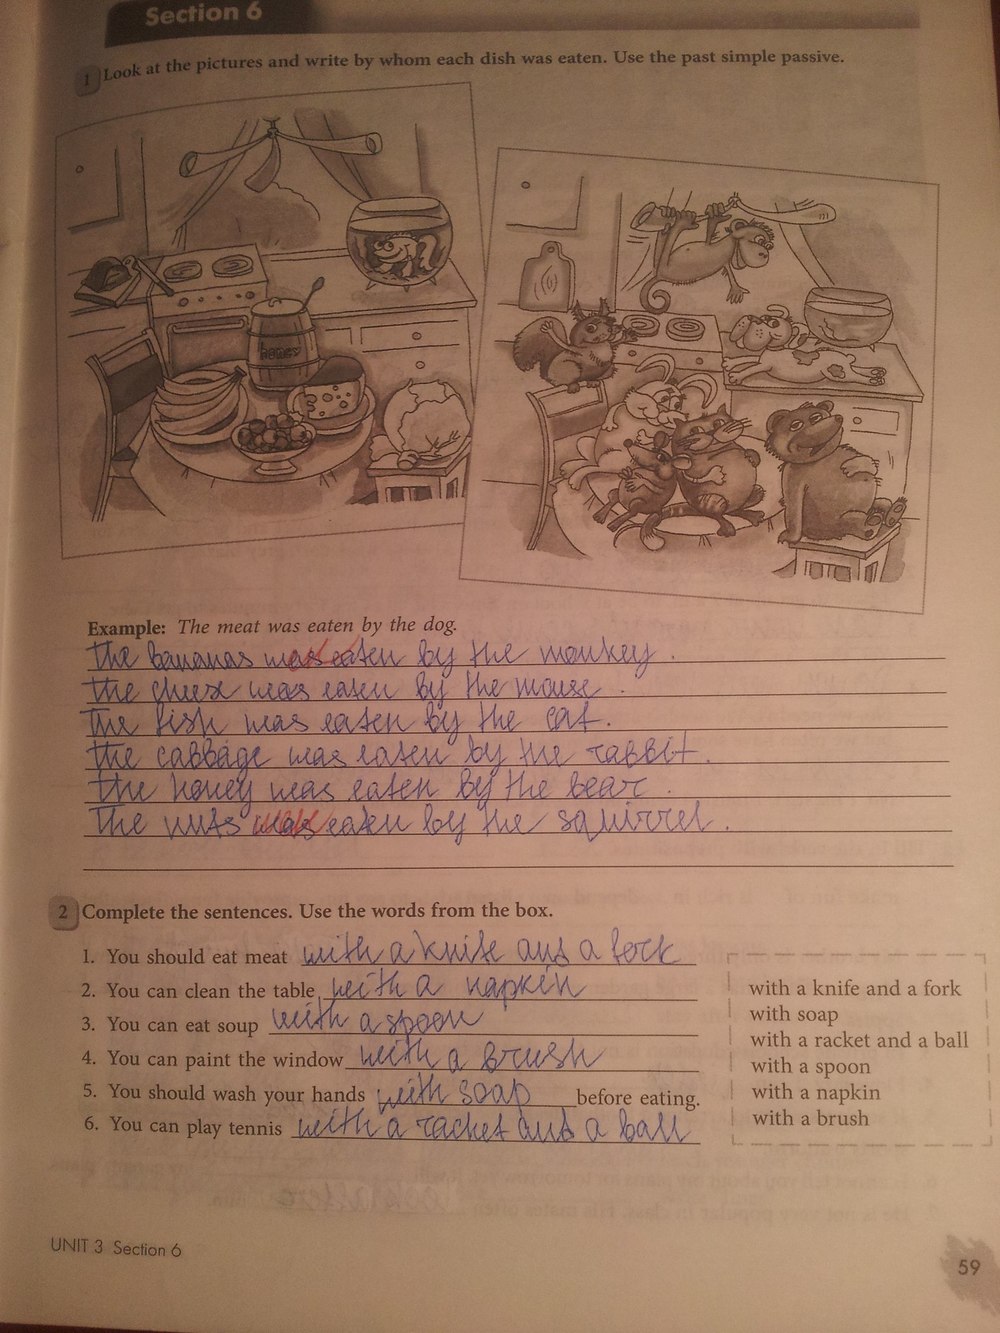 Section 6
1 Look at the pictures and write by whom each dish was eaten. Use the past simple passive.
honey
Example: The meat was eaten by the dog.
The bananas was eaten by the monkey.
The cheese was eaten by the mouse.
The fish was eaten by the cat.
The cabbage was eaten by the rabbit.
The honey was eaten by the bear.
The nuts was eaten by the squirrel.
2 Complete the sentences. Use the words from the box.
1. You should eat meat with a knife and a fork
2. You can clean the table with a napkin
3. You can eat soup with a spoon
4. You can paint the window with a brush
5. You should wash your hands with soap before eating.
6. You can play tennis with a racket and a ball
with a knife and a fork
with soap
with a racket and a ball
with a spoon
with a napkin
with a brush
UNIT 3 Section 6
59